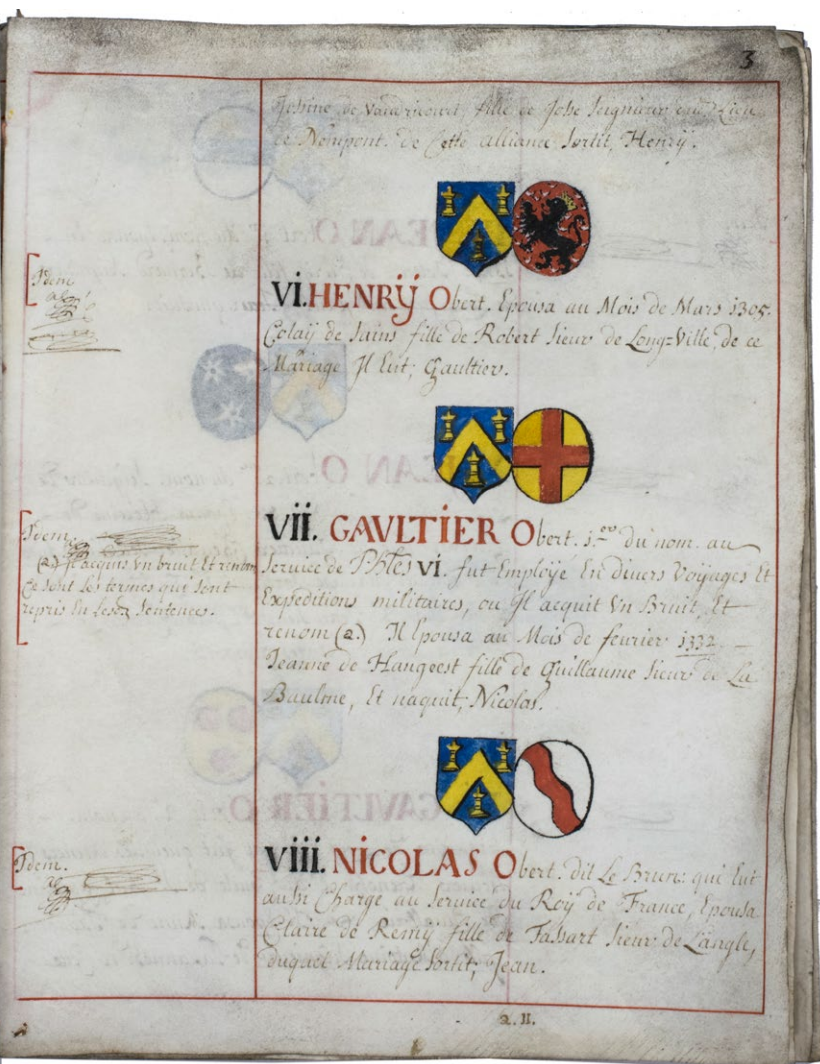 3
Josine de Vaudricourt, fille de Josse Seigneur dud. Lieu
de Nempont. de Cette alliance Sortit, Henrÿ.
Idem
VI. HENRŸ Obert. Epousa au Mois de Mars 1305.
Colaÿ de Sains fille de Robert Sieur de Long=Ville, de ce
Mariage Il Eut, Gaultier.
Idem.
(2.) Il acquis Vn bruit Et renom
Ce sont les termes qui sont
repris En Lesd. Sentences.
VII. GAVLTIER Obert. 1.er du nom. au
Service de Phles VI. fut Employé En divers Voyages Et
Expeditions militaires, ou Il acquit Vn Bruit, Et
renom (2.) Il Epousa au Mois de feurier 1332.
Jeanne de Hangeest fille de Guillaume Sieur de La
Baulme, Et naquit, Nicolas.
Idem.
VIII. NICOLAS Obert. dit Le Brun: qui Eut
aussi Charge au Service du Roÿ de France, Epousa
Claire de Remÿ fille de Tassart Sieur de Langle,
duquel Mariage Sortit, Jean.
2. II.